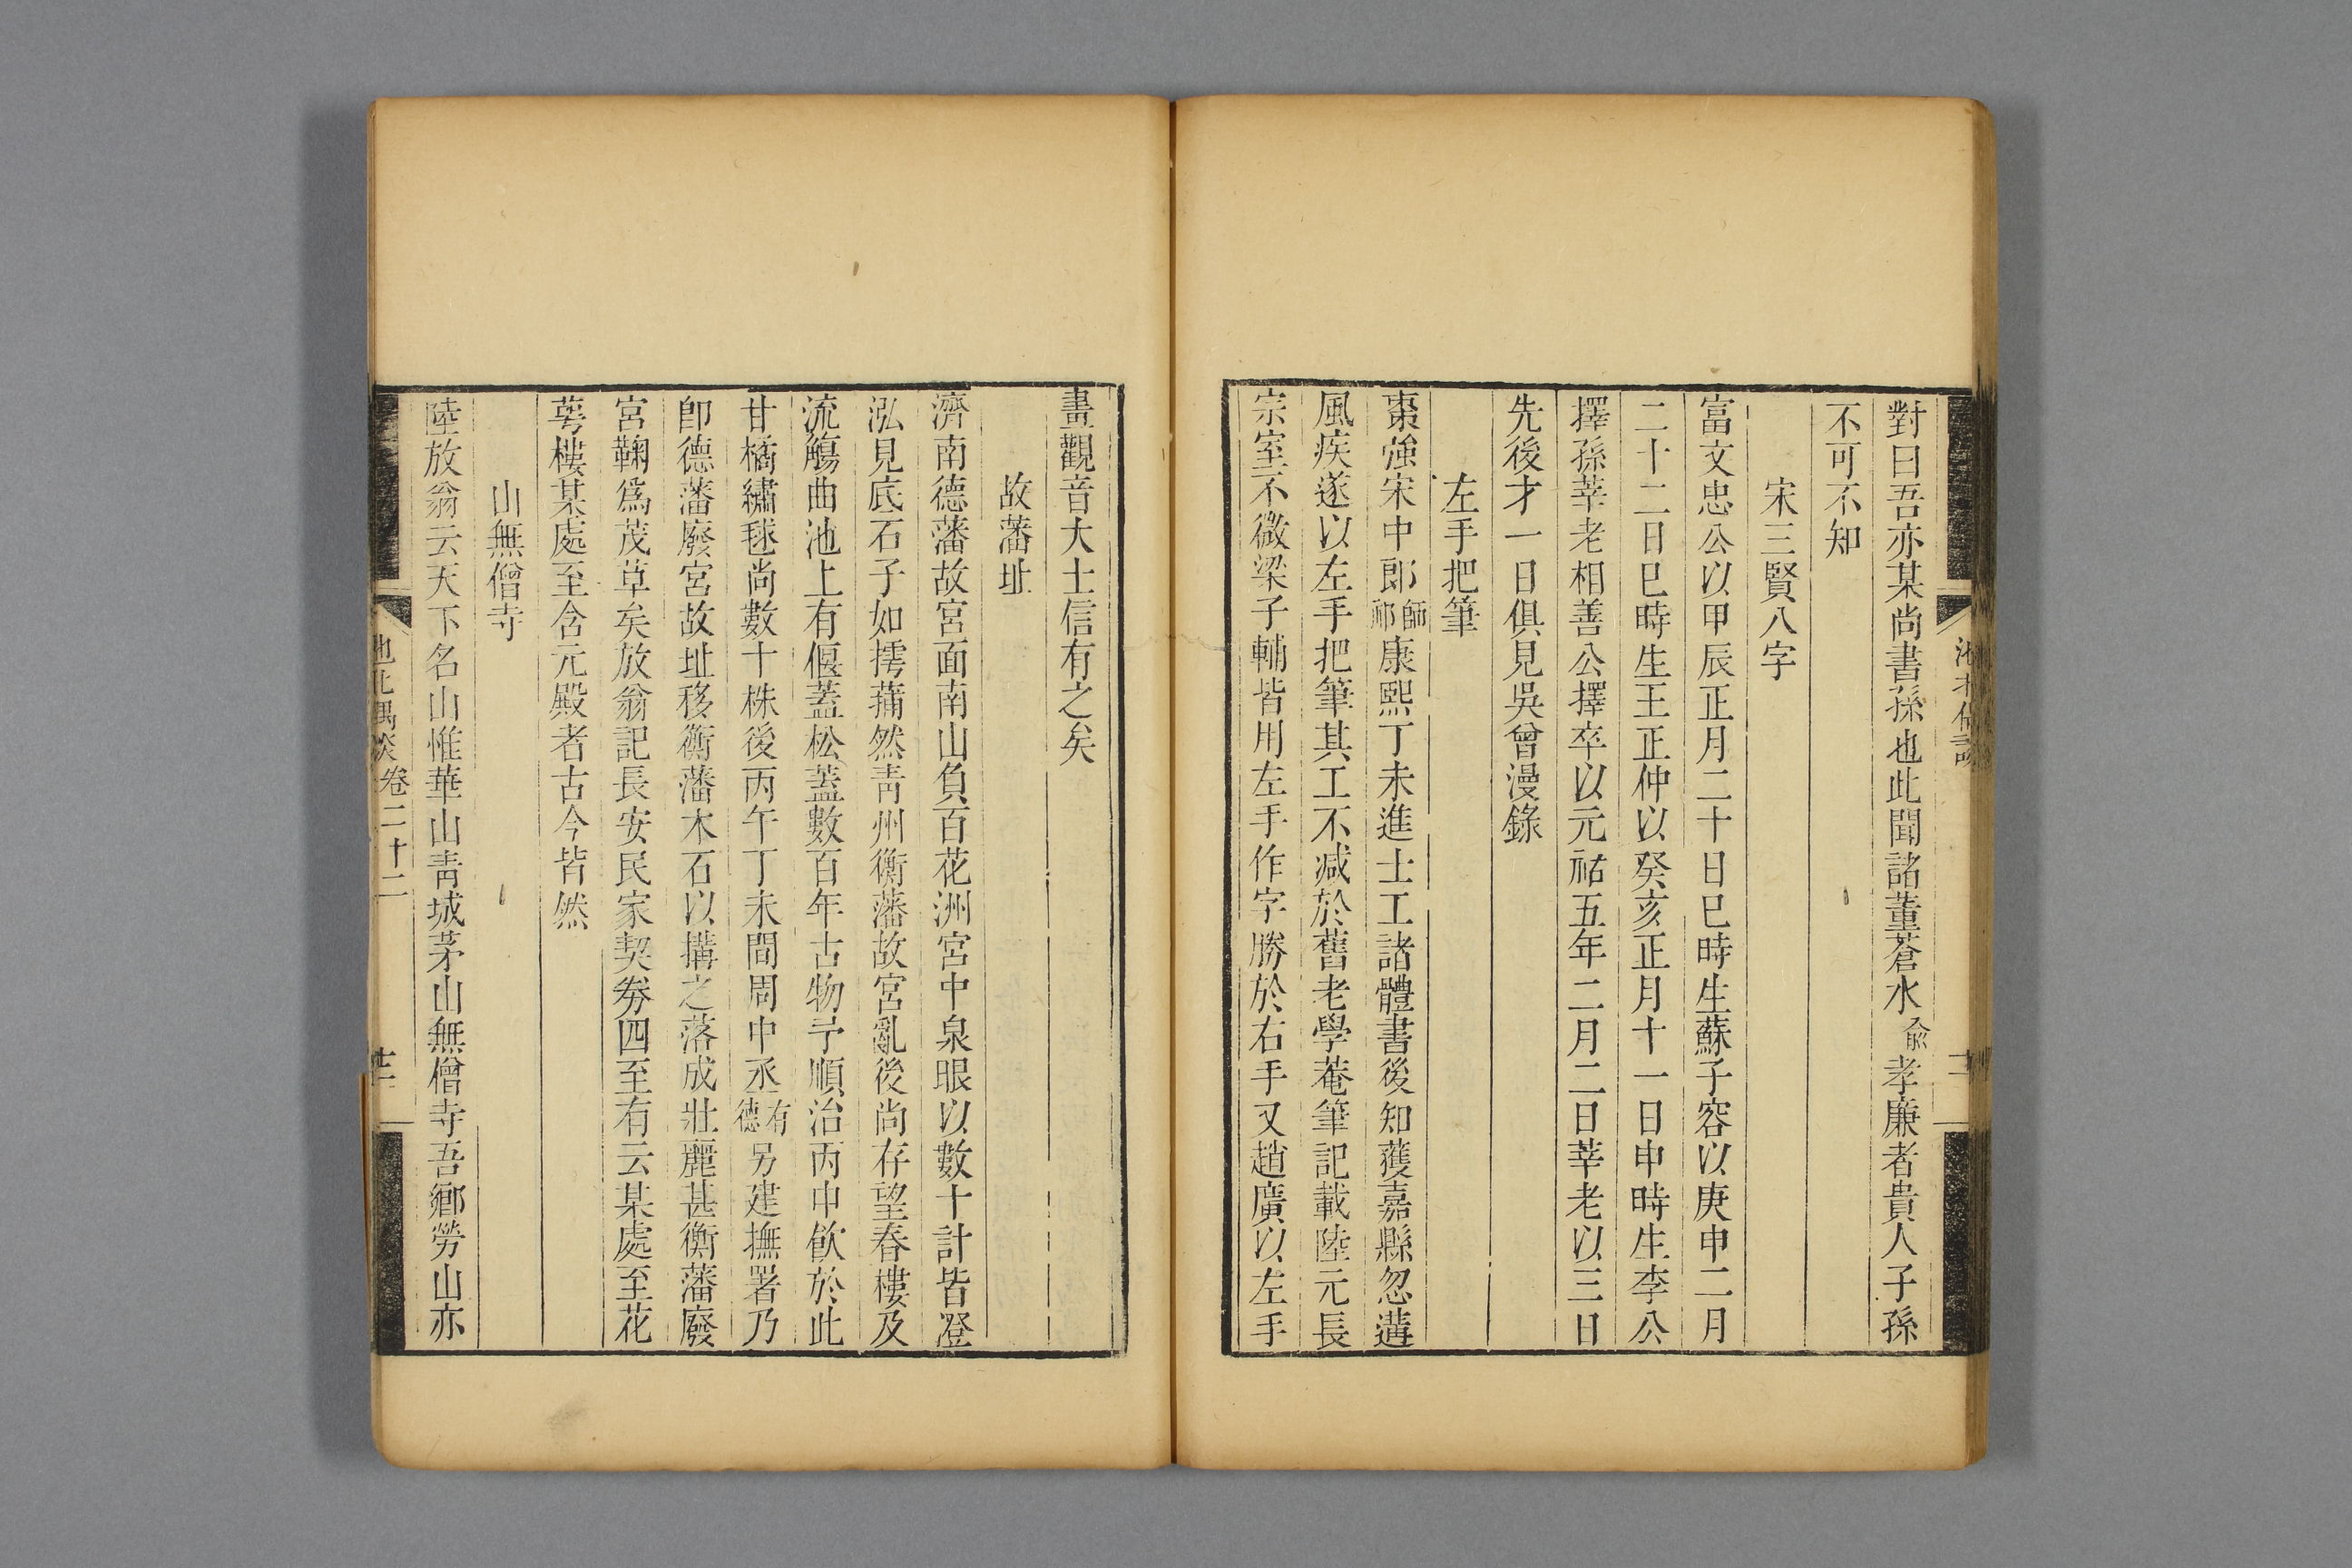 對曰吾亦某尚書孫也此聞諸董蒼水俞孝廉者貴人子孫
不可不知
宋三賢八字
富文忠公以甲辰正月二十日巳時生蘇子容以庚申二月
二十二日巳時生王正仲以癸亥正月十一日申時生李公
擇孫莘老相善公擇卒以元祐五年二月二日莘老以三日
先後才一日俱見吳曾漫錄
左手把筆
棗強宋中郎師祁康熙丁未進士工諸體書後知獲嘉縣忽遘
風疾遂以左手把筆其工不減於舊老學菴筆記載陸元長
宗室不微梁子輔皆用左手作字勝於右手又趙廣以左手
畫觀音大士信有之矣
故藩址
濟南德藩故宮面南山負百花洲宮中泉眼以數十計皆澄
泓見底石子如摴蒱然青州衡藩故宮亂後尚存望春樓及
流觴曲池上有偃蓋松蓋數百年古物予順治丙申飲於此
甘橘繡毬尚數十株後丙午丁未間周中丞有德另建撫署乃
即德藩廢宮故址移衡藩木石以搆之落成壯麗甚衡藩廢
宮鞠為茂草矣放翁記長安民家契劵四至有云某處至花
萼樓某處至含元殿者古今皆然
山無僧寺
陸放翁云天下名山惟華山青城茅山無僧寺吾鄉勞山亦
池北偶談卷二十二